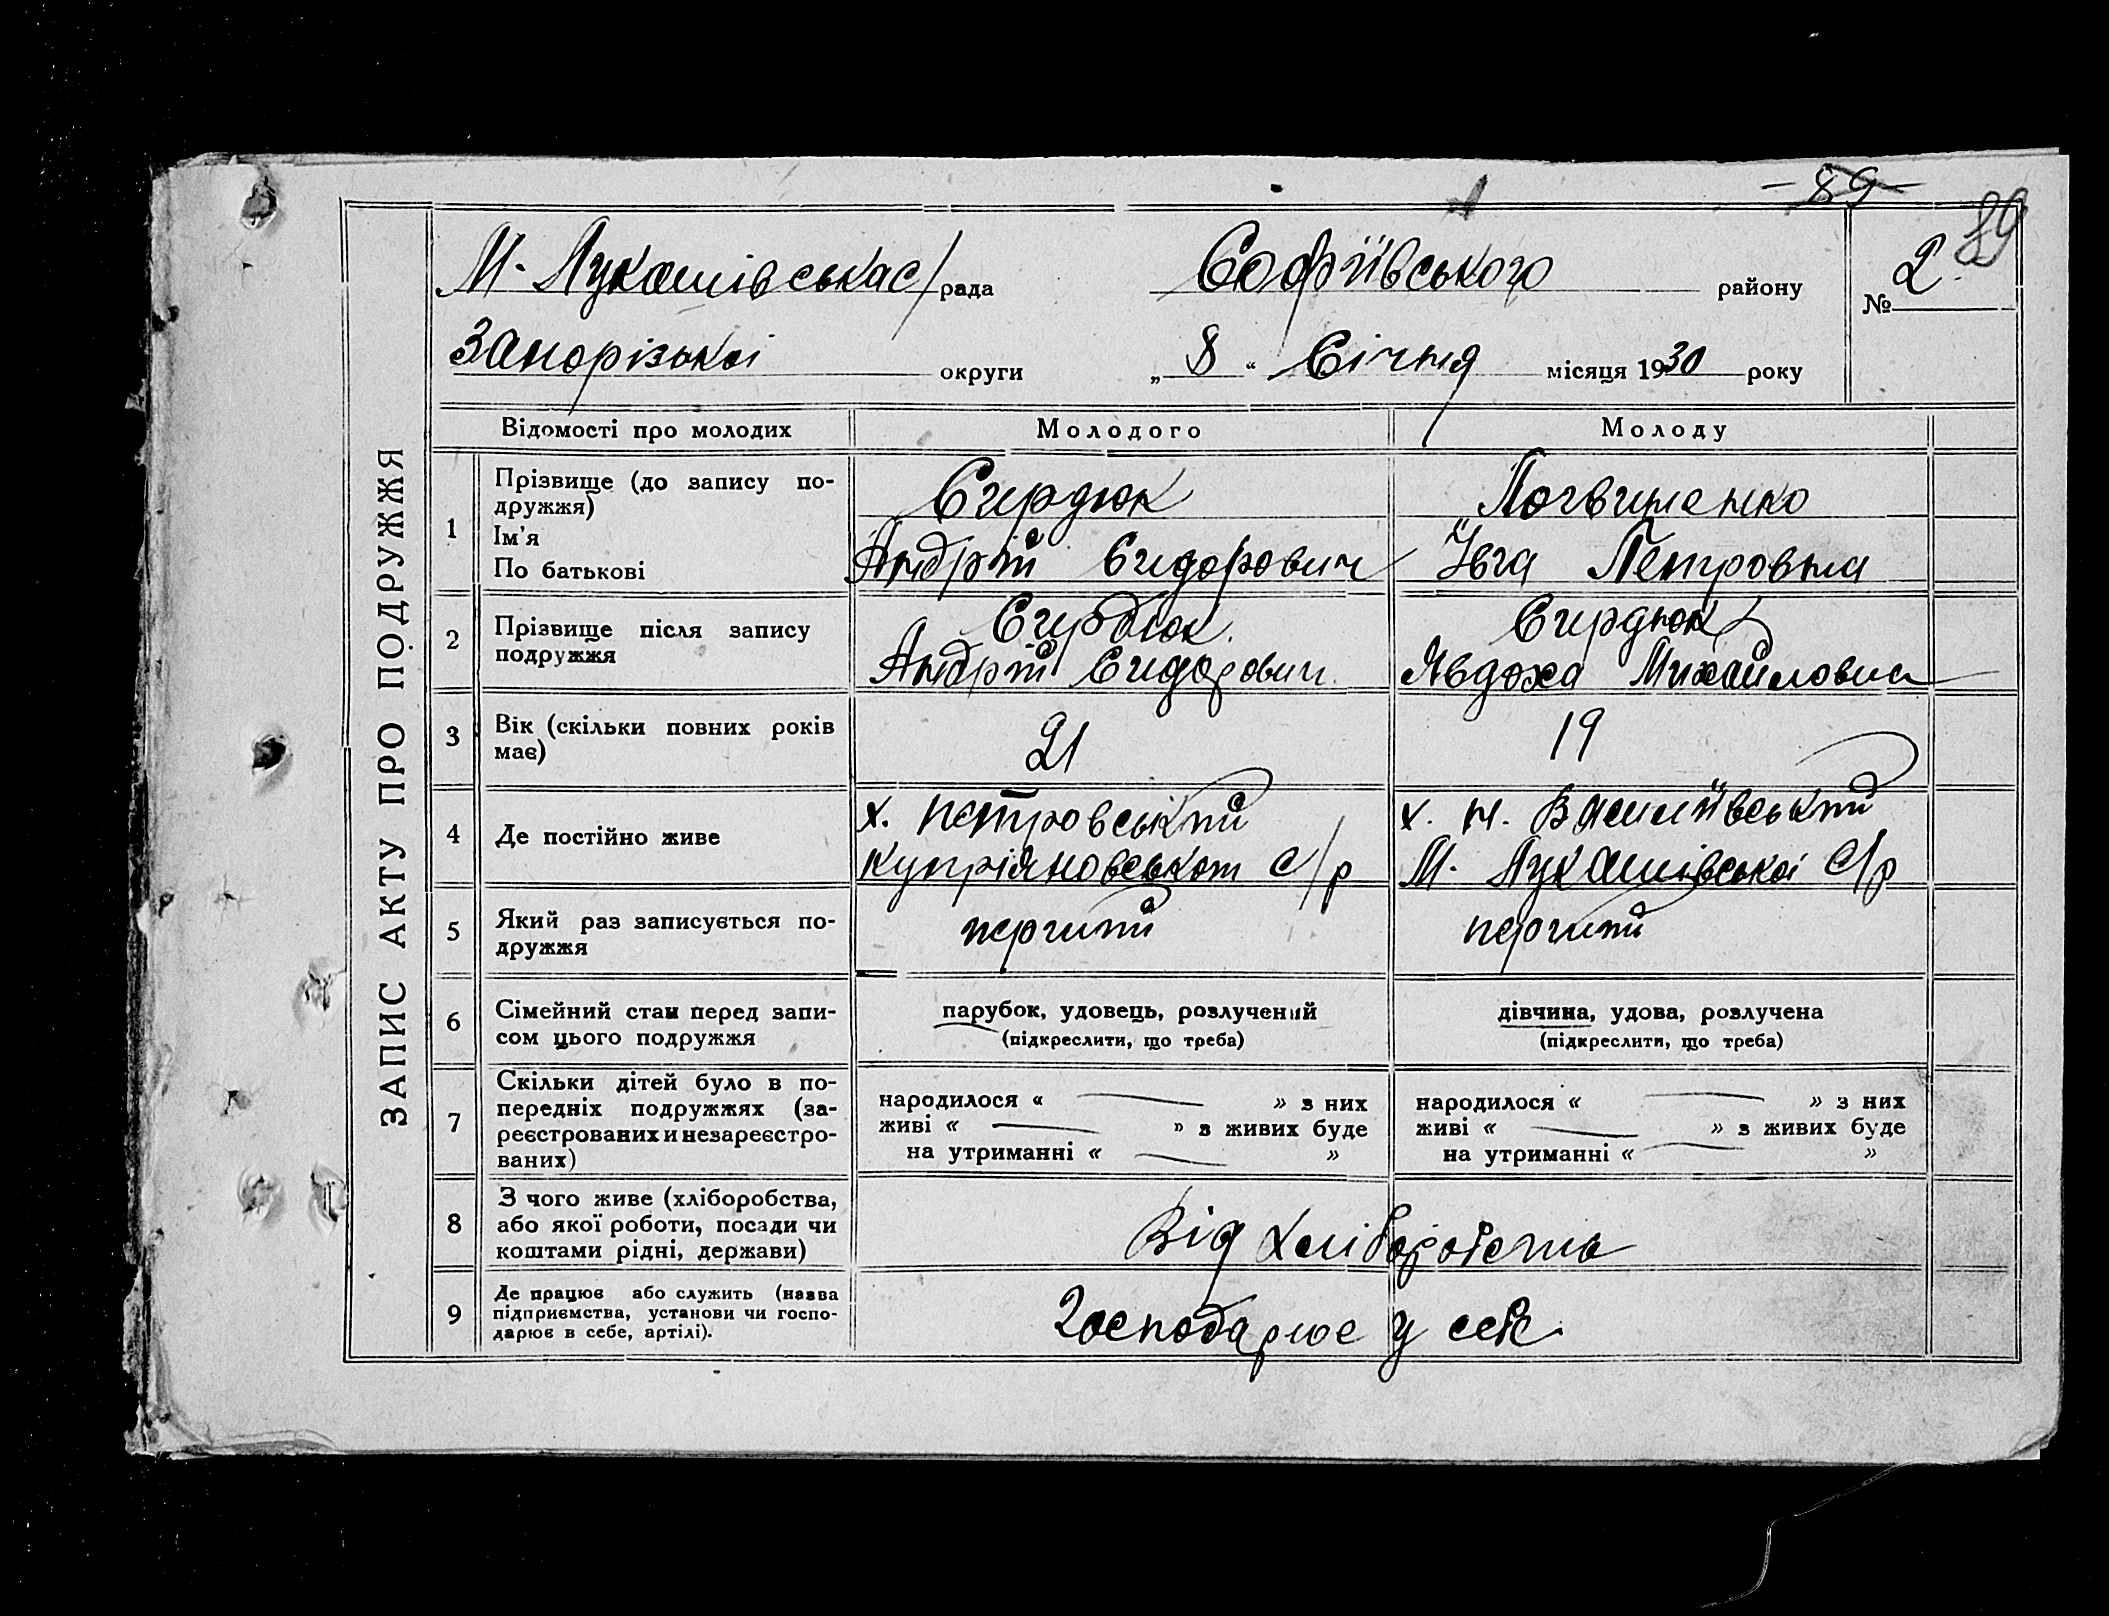 89
89
М. Лукашівська с/рада Софіївського району № 2
Запорізької округи „ 8 “ Січня місяця 1930 року
ЗАПИС АКТУ ПРО ПОДРУЖЖЯ
Відомості про молодих Молодого Молоду
1 Прізвище (до запису по-
дружжя)
Ім'я
По батькові
Сердюк
Андрій Сидорович
Логвиненко
Ївга Петровна
2 Прізвище після запису
подружжя
Сердюк.
Андрій Сидорович.
Сердюк
Явдоха Михайловна
3 Вік (скільки повних років
має)
21
19
4 Де постійно живе
х. Петровський
Купріяновської С/р
х. Н. Василівський
М. Лукашівської С/р
5 Який раз записується по-
дружжя
первий
первий
6 Сімейний стан перед запи-
сом цього подружжя
парубок, удовець, розлучений
(підкреслити, що треба)
дівчина, удова, розлучена
(підкреслити, що треба)
7 Скільки дітей було в по-
передніх подружжях (за-
реєстрованих и незареєстро-
ваних)
народилося « » з них
живі « » з живих буде
на утриманні « »
народилося « » з них
живі « » з живих буде
на утриманні « »
8 З чого живе (хліборобства,
або якої роботи, посади чи
коштами рідні, держави)
Від Хліборобства
9 Де працює або служить (назва
підприємства, установи чи госпо-
дарює в себе, артілі).
Господарює у себе.